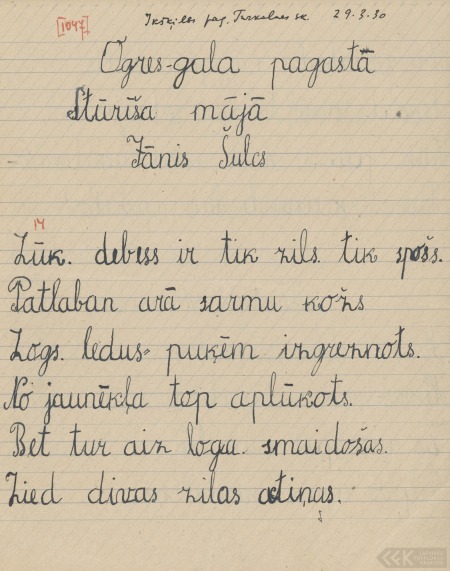 [1047] Ikšķiles pag. Turkalnes sk. 29.3.30
Ogres-gala pagastā
Stūrīša mājā
Jānis Šulcs
14
Lūk. debess ir tik zils. tik spošs.
Patlaban arā sarmu kožs
Logs. ledus= puķēm izgreznots.
No jaunēkļa top aplūkots.
Bet tur aiz loga. smaidošas.
Zied divas zilas atiņas.